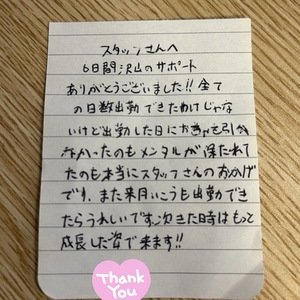 スタッフさんへ
6日間沢山のサポート
ありがとうございました!!全て
の日数出勤できたわけじゃな
いけど出勤した日にお茶を引か
なかったのもメンタルが保たれて
たのも本当にスタッフさんのおかげ
です。また来月いこうも出勤でき
たらうれしいです。次きた時はもっと
成長した姿で来ます!!
Thank
You